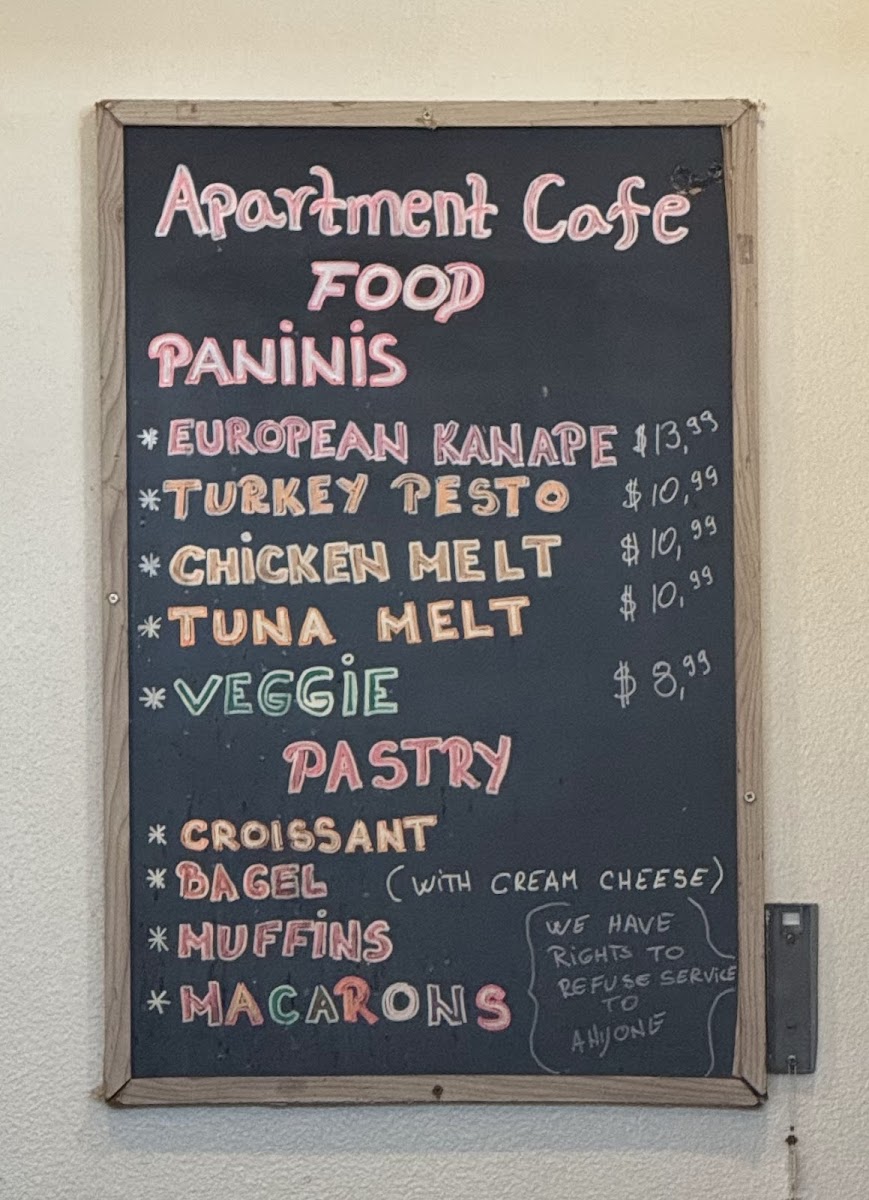 Apartment Cafe
FOOD
PANINIS
* EUROPEAN KANAPE $13,99
* TURKEY PESTO $10,99
* CHICKEN MELT $10,99
* TUNA MELT $10,99
* VEGGIE $8,99
PASTRY
* CROISSANT
* BAGEL (WITH CREAM CHEESE)
* MUFFINS
* MACARONS
WE HAVE
RIGHTS TO
REFUSE SERVICE
TO
ANYONE